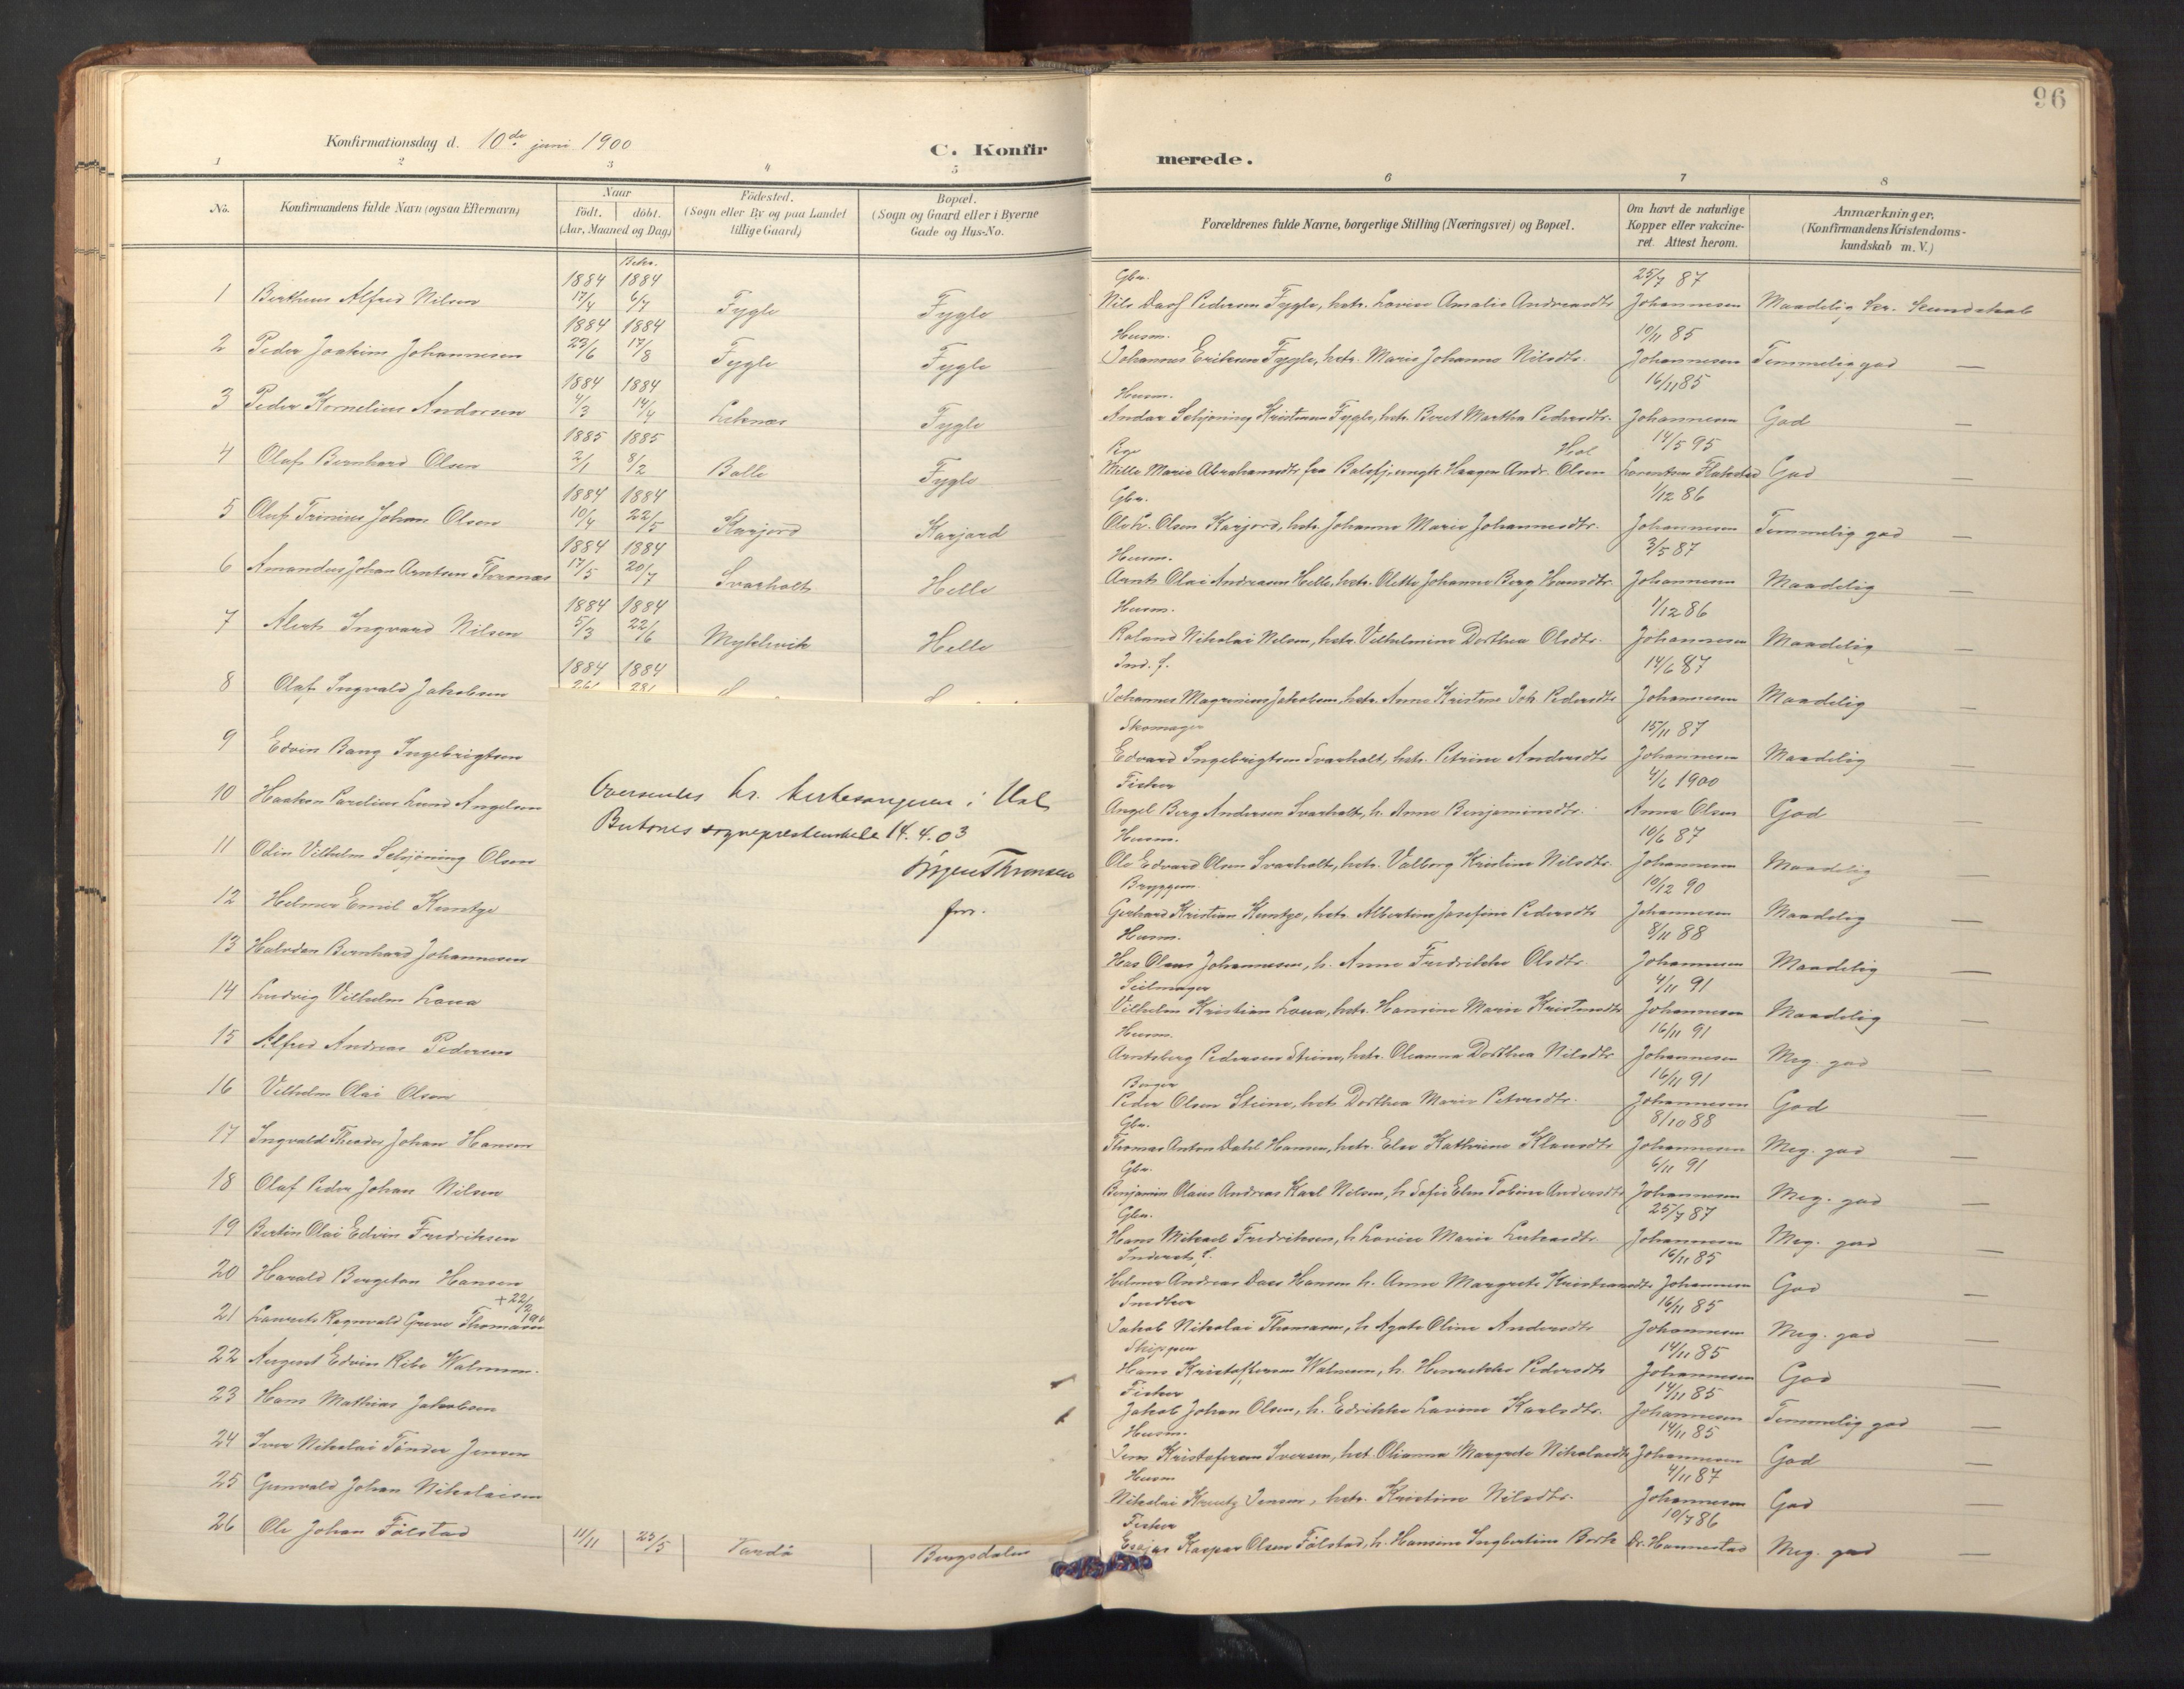 96
Konfirmationsdag d. 10de juni 1900
C. Konfir
merede.
1 2 3 4 5 6 7 8
No.
Konfirmandens fulde Navn (ogsaa Efternavn)
Naar
födt. döbt.
(Aar, Maaned og Dag)
Födested.
(Sogn eller By og paa Landet
tillige Gaard)
Bopæl.
(Sogn og Gaard eller i Byerne
Gade og Hus-No.
Forældrenes fulde Navne, borgerlige Stilling (Næringsvei) og Bopæl.
Om havt de naturlige
Kopper eller vakcine-
ret. Attest herom.
Anmærkninger.
(Konfirmandens Kristendoms-
kundskab m. V.)
1884 1884 Gbr. 25/7 87
1 Bertheus Alfred Nilsen 17/4 6/7 Fygle Fygle Nils Pedersen Fygle, hstr. Lovise Amalie Andreasdtr Johannesen Maadelig Kr. Kundskab
1884 1884 Husm. 10/11 85
2 Peder Joakim Johannesen 23/6 17/8 Fygle Fygle Johannes Eriksen Fygle, hstr. Marie Johanna Nilsdtr. Johannesen Temmelig god —
1884 1884 Husm. 16/11 85
3 Peder Kornelius Andorsen 4/3 14/4 Leknæs Fygle Andor Schjöning Kristensen Fygle, hstr. Beret Martha Pedersdtr. Johannesen God —
1885 1885 Pige Hol 14/5 95
4 Olaf Bernhard Olsen 2/1 8/2 Balle Fygle Mille Marie Abrahamsdtr fra ungk Haagen Andr. Olsen Lorentsen Flakstad God
1884 1884 Gbr. 1/12 86
5 Oluf Trinius Johan Olsen 10/4 22/5 Karjord Karjord Ole L. Olsen Karjord, hstr. Johanna Marie Johannesdtr. Johannesen Temmelig god —
1884 1884 Husm. 3/5 87
6 Amandus Johan Arntsen 17/5 20/7 Svarholt Helle Arnt Olai Andreasen Helle, hstr. Oletta Johanna Berg Hansdtr. Johannesen Maadelig —
1884 1884 Husm. 1/12 86
7 Alert Ingvard Nilsen 5/3 22/6 Myklevik Helle Roland Nikolai Nelsen, hstr. Vilhelmine Dorthea Olsdtr. Johannesen Maadelig —
1884 1884 Ind. f. 14/6 87
8 Olaf Ingvald Jakobsen Johannes Magnus Jakobsen, hstr. Anne Kristine Joh. Pedersdtr Johannesen Maadelig —
Skomager 15/11 87
9 Edvin Bang Ingebrigtsen Edvard Ingebrigtsen Svarholt, hstr. Petrine Andersdtr Johannesen Maadelig —
Fisker 4/6 1900
10 Haakon Parelius Lund Angelsen Angel Berg Andersen Svarholt, h. Anne Benjaminsdtr. Anna Olsen God —
Husm. 10/6 87
11 Odin Vilhelm Schjöning Olsen Ole Edvard Olsen Svarholt, hstr. Valborg Kristine Nilsdtr. Johannesen Maadelig —
Bryggem. 10/12 90
12 Helmer Emil Kuntze Gerhard Kristian Kuntze, hstr. Albertine Josefine Pedersdtr Johannesen Maadelig —
Husm. 8/11 88
13 Halvdan Bernhard Johannesen Olaus Johannesen, h. Anne Fredrikke Olsdtr. Johannesen Maadelig —
Seilmager 4/11 91
14 Ludvig Vilhelm Loua Vilhelm Kristian Loua, hstr. Hansine Marie Johannesen Maadelig —
Husm. 16/11 91
15 Alfred Andreas Pedersen Arntsberg Pedersen Steine, hstr. Oleanna Dorthea Nilsdtr Johannesen Meg. god —
16/11 91
16 Vilhelm Olai Olsen Peder Olsen Steine, hstr. Dorthea Marie Petersdtr. Johannesen God —
Gbr. 8/10 88
17 Ingvald Theodor Johan Hansen Thomas Anton Dahl Hansen, hstr. Else Kathrine Klausdtr Johannesen Meg. god —
Gbr. 6/11 91
18 Olaf Peder Johan Nilsen Benjamin Olaus Andreas Karl Nilsen, h. Sofie Tobine Andersdtr Johannesen Meg. god —
Gbr. 25/7 87
19 Bertin Olai Edvin Fredriksen Hans Mikael Fredriksen, h. Lovise Marie Johannesen Meg. god —
Inderst f. 16/11 85
20 Harald Bergeton Hansen Helmer Andreas Dass Hansen h. Anne Margrete Kristiansdtr Johannesen God —
+22/2 Snedker 16/11 85
21 Laurits Ragnvald Greve Thomasen Jakob Nikolai Thomasen, h. Agate Oline Andersdtr Johannesen Meg. god —
Skipper 14/11 85
22 August Edvin Ribe Walmsen. Hans Kristoffersen Walnsen, h. Henrikke Pedersdtr Johannesen God —
Fisker 14/11 85
23 Hans Mathias Jakobsen Jakob Johan Olsen, h. Edrikke Lavine Karlsdtr. Johannesen Temmelig god —
Husm. 14/11 85
24 Iver Nikolai Tönder Jensen Jens Kristofersen Iversen, hst. Olianna Margrete Nikolaisdtr Johannesen God —
Husm 4/11 87
25 Gunvald Johan Nikolaisen Nikolai Kreutz Jensen, hstr. Kristine Nilsdtr. Johannesen God —
Fisker 10/7 86
26 Ole Johan Fölstad 11/11 23/5 Vardö Bergsdalen Esaias Kaspar Olsen Fölstad, h. Hansine Ingbertine Dr. Hannestad Meg. god —
Oversendes hr. kirkesangeren i Hol
Buksnes sogneprestembede 14.4.03
Jörgen Thronsen